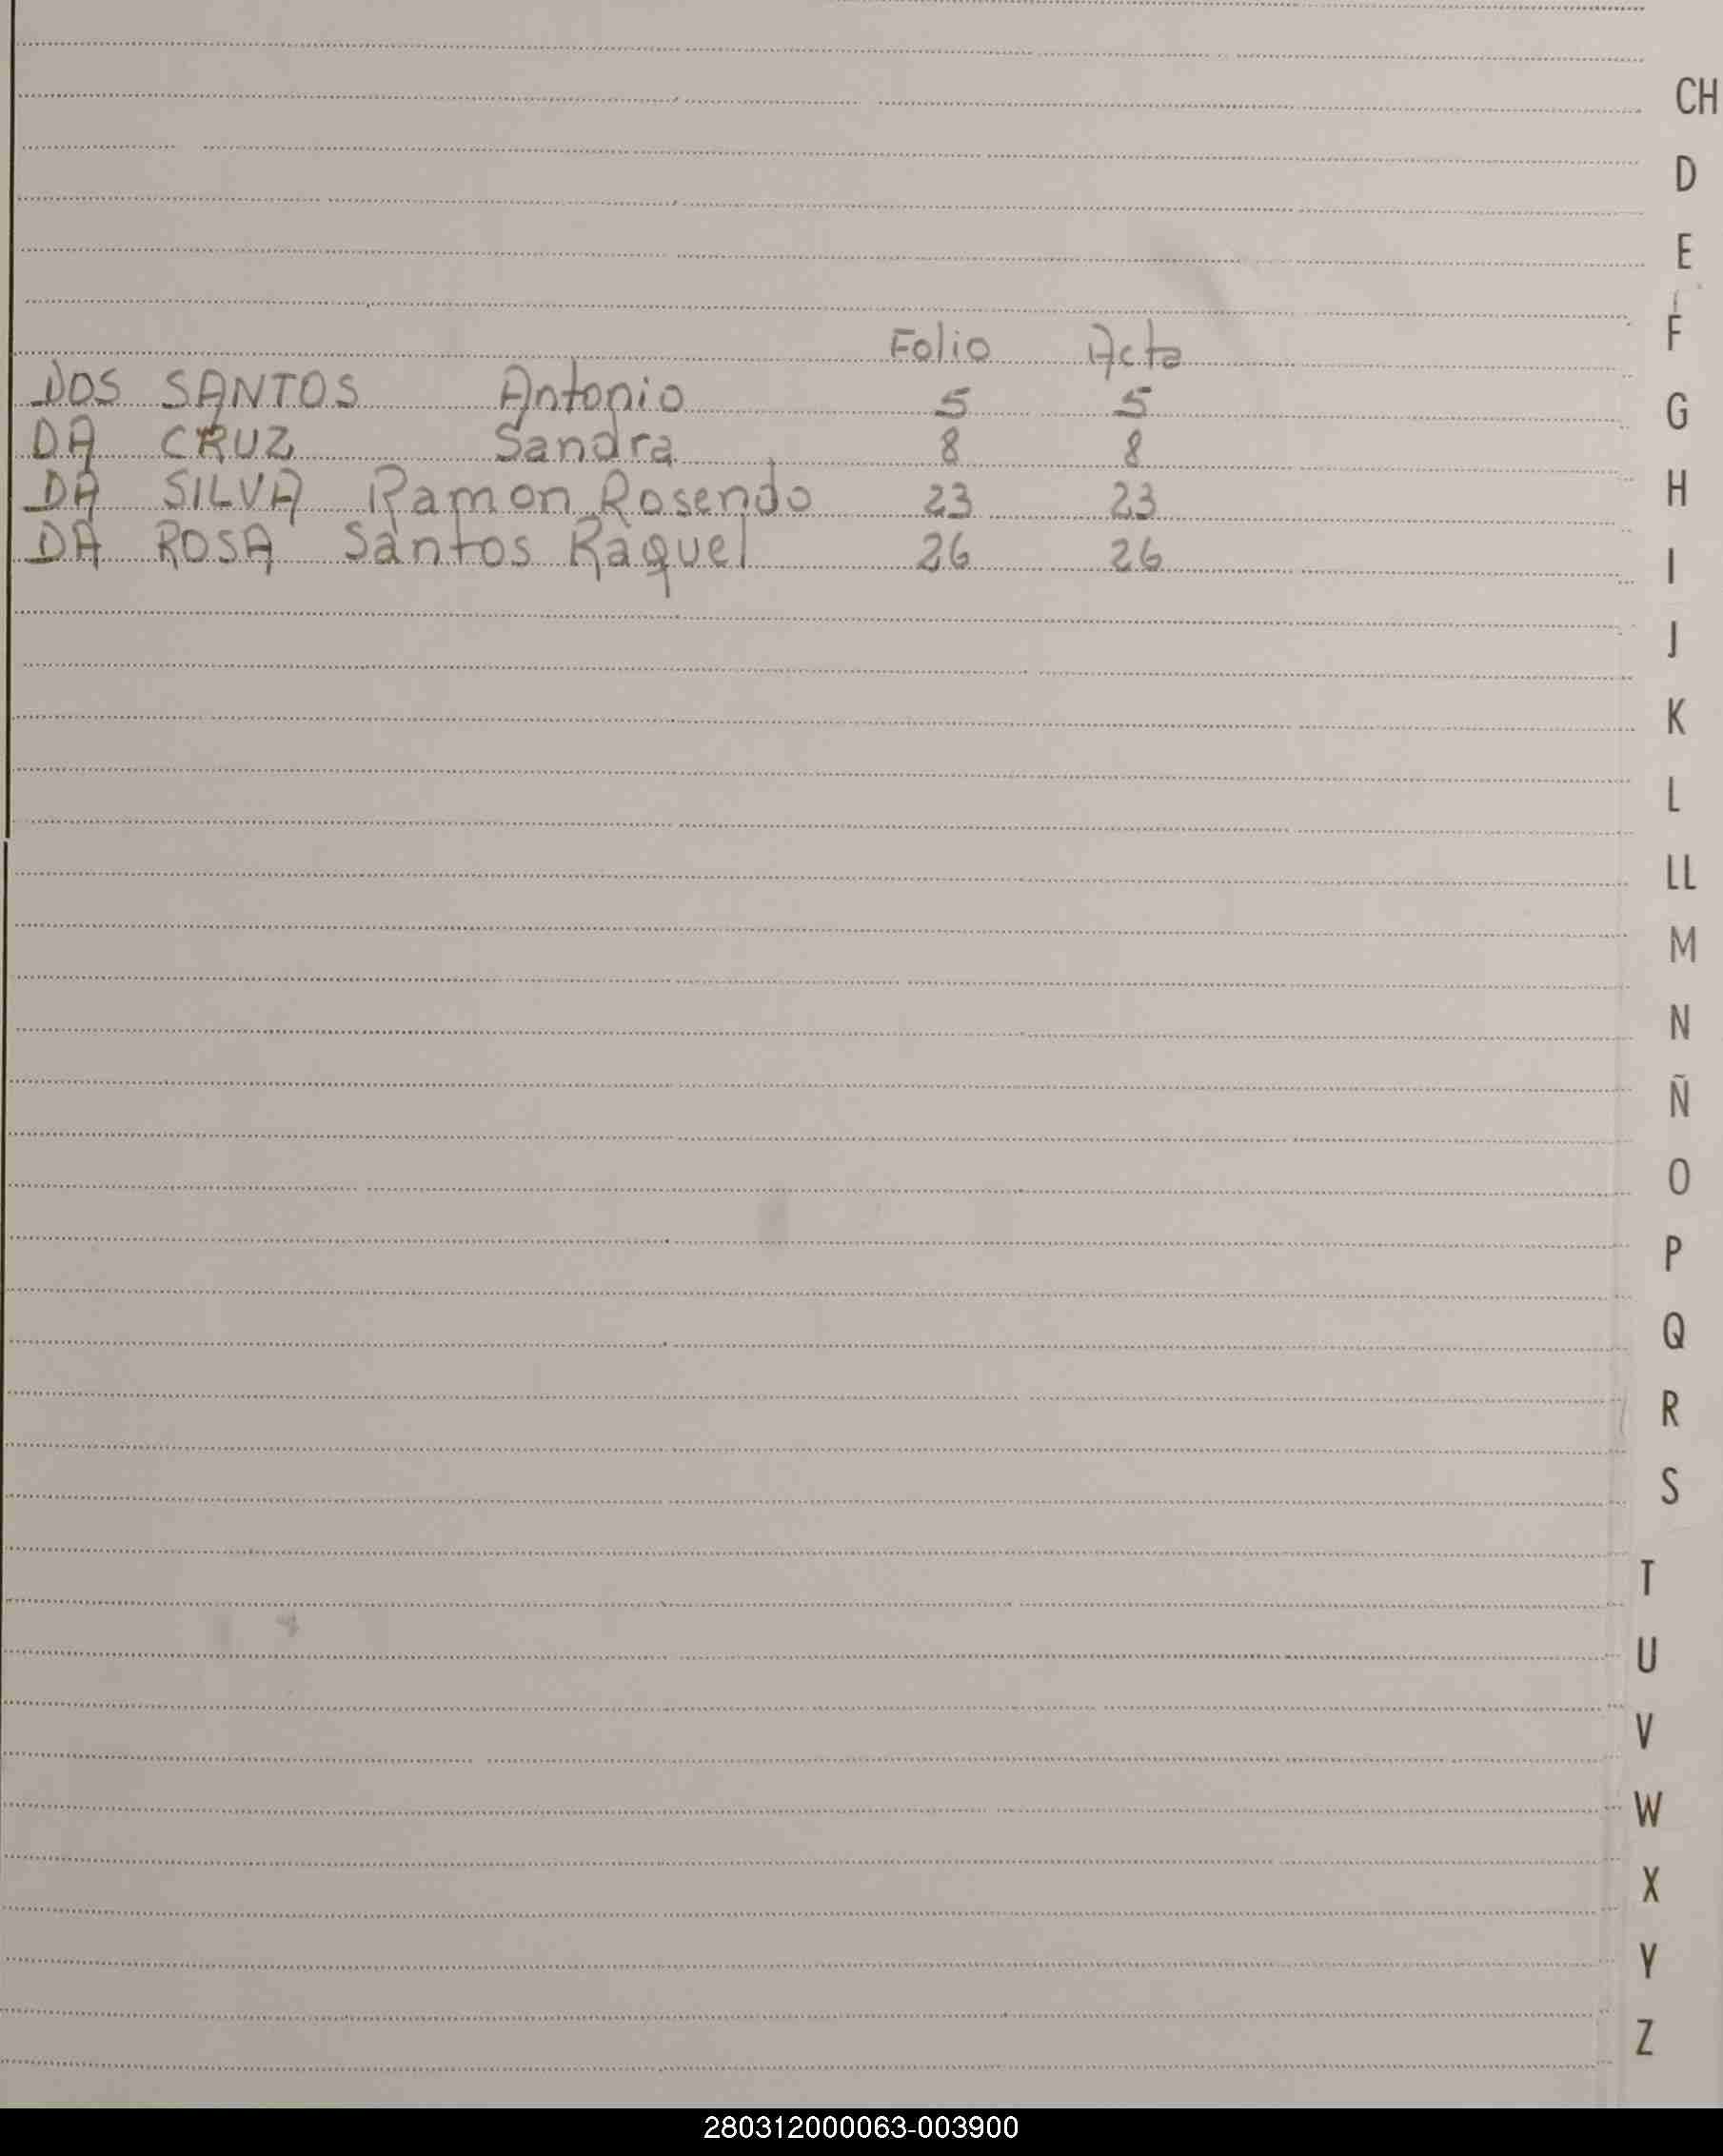 CH
D
E
F
Folio Acta
DOS SANTOS Antonio 5 5
G
DA CRUZ Sandra 8 8
DA SILVA Ramon Rosendo 23 23
H
DA ROSA Santos Raquel 26 26
I
J
K
L
LL
M
N
Ñ
O
P
Q
R
S
T
U
V
W
X
Y
Z
280312000063-003900